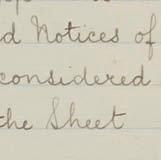 d Notices of
considered
the Sheet